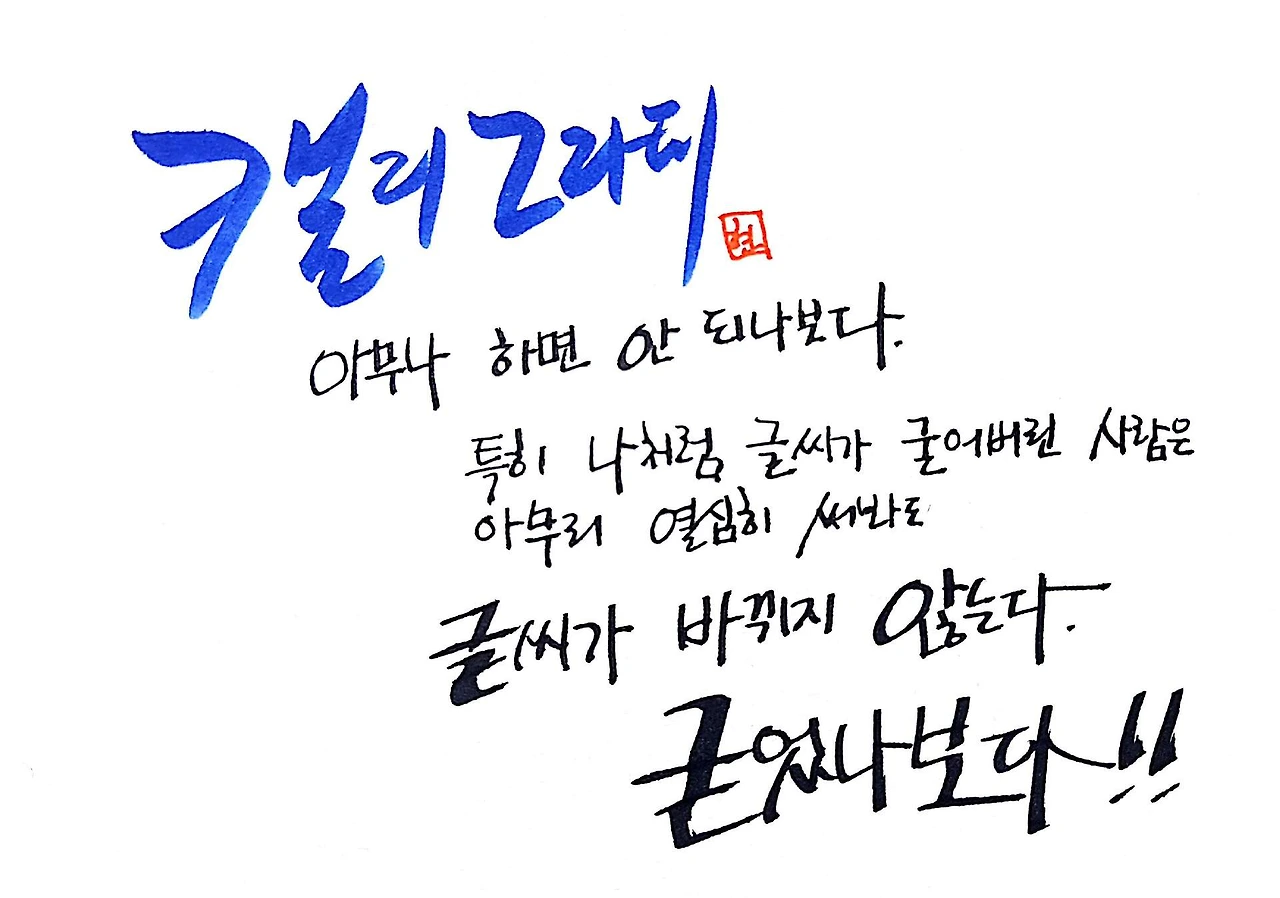 캘리그라피
현
아무나 하면 안 되나보다.
특히 나처럼 글씨가 굳어버린 사람은
아무리 열심히 써봐도
글씨가 바뀌지 않는다.
굳었나보다!!